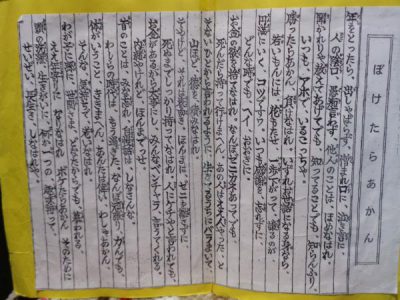 ぼけたらあかん
年をとったら、出しゃばらず、憎まれ口に、泣き言に
人のかげ口 愚痴言わず 他人のことは、ほめなはれ、
聞かれりゃ教えてあげてでも、知ってることでも、知らんふり、
いつも、アホで、いるこっちゃ。
勝ったらあかん、負けなはれ、いずれお世話になる身なら、
若いもんには 花もたせ 一歩さがって、譲るのが
円満にいく、コツですワ。いつも感謝を忘れずに、
どんな時でも、ヘイ、おおきに。
お金の欲を捨てなはれ、なんぼゼニカネあってでも、
死んだら持って行けまへん、あの人は ええ人やった、と
そないに人から言われるように、生きてるうちにバラまいて
山ほど 徳を積みなはれ。
そやけど、それは表向き、ほんまは、ゼニを離さずに
死ぬまでしっかり持ってなはれ、人にケチやと言われても
お金があるから大事にし、みんなベンチャラ言うてくれる。
内緒やけれど ほんまでっせ。
昔のことは、みな忘れ、自慢話は しなさんな、
わしらの時代は、もう過ぎた、なんぼ頑張り、力んでも、
体がいうこと、ききまへん、あんたは偉い わしゃあかん
そんな気持で、おりなはれ
わが子に孫に、世間さま、どなたからでも、慕われる
ええ年寄りに なりなはれ ボケたらあかん そのために
頭の洗濯 生きがいに、何か一つの 趣味持って、
せいぜい長生き しなはれや。